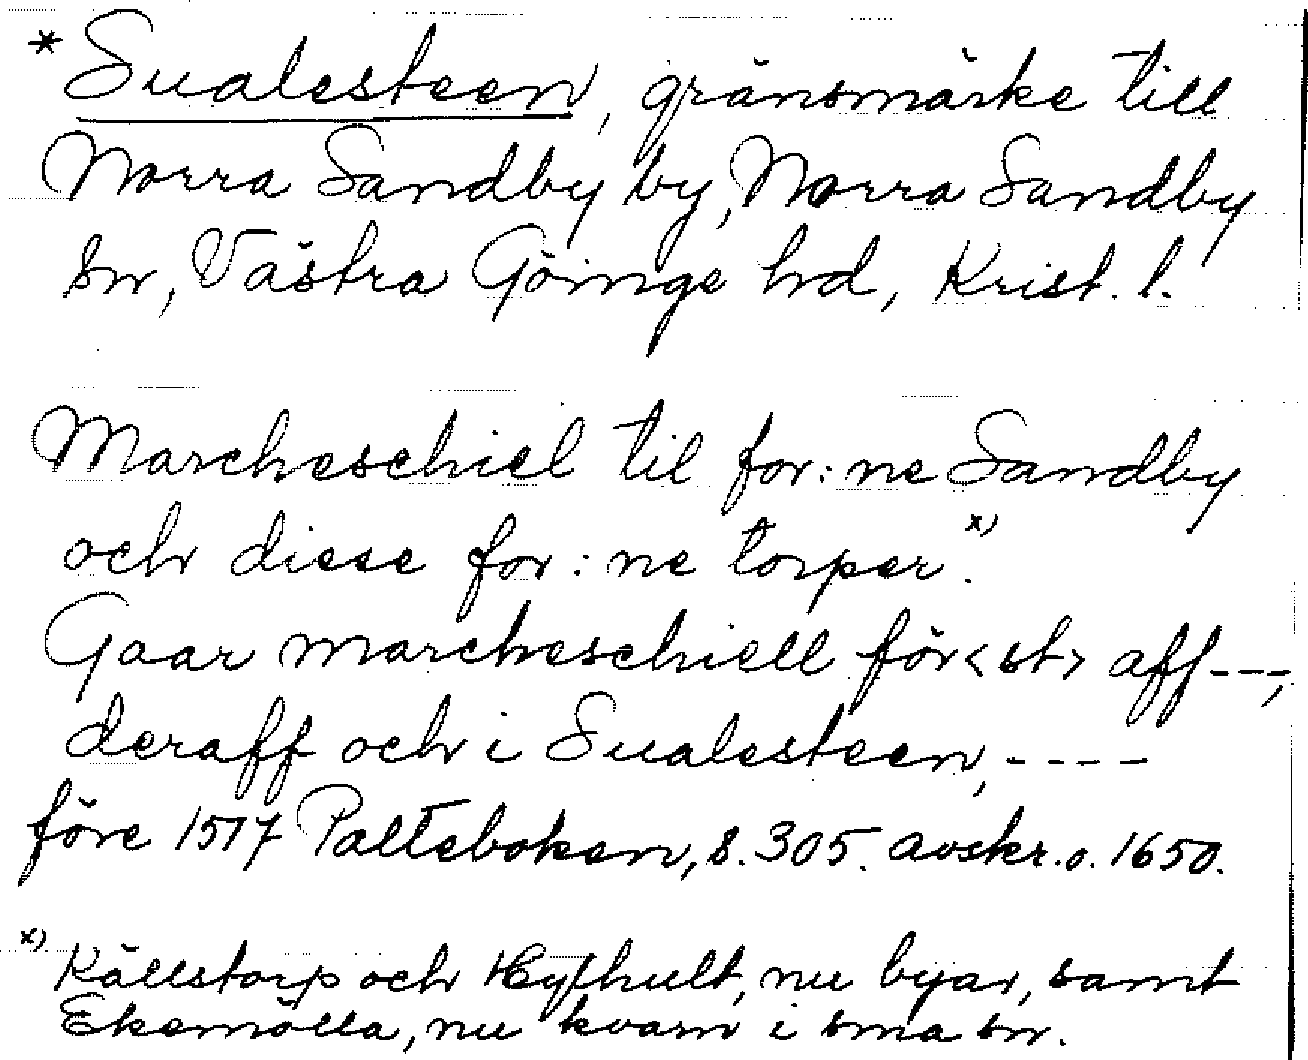 * Sualesteen, gränsmärke till
Norra Sandby by, Norra Sandby
sn, Västra Göinge hd, Krist. l.
Marcheschiel til for:ne Sandby
och diese for:ne torper.x)
Gaar marcheschiell för<st> aff---,
deraff och i Sualesteen,----
före 1517 Palteboken, s. 305. avskr. o. 1650.
x) Källstorp och Hylhult, nu byar, samt
Ekemölla, nu kvarn i sma sn.